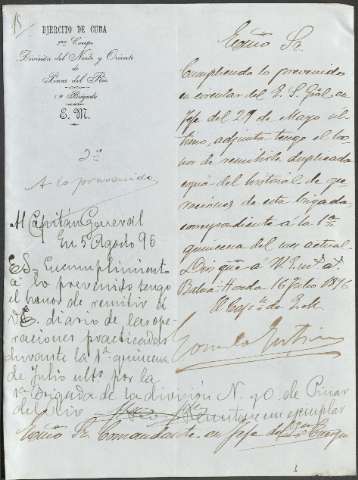 EJERCITO DE CUBA
2º Cuerpo
División del Norte y Oriente
de
Pinar del Río
1ª Brigada
E. M.
2ª
A lo prevenido
Al Capitan General
En 5 Agosto 96
ES. En cumplimiento
á lo prevenido tengo
el honor de remitir á
V.E. diario de las ope-
raciones practicadas
durante la 1ª quincena
de Julio ultº por la
1ª Brigada de la división N. y O. de Pinar
del Rio remitiere un ejemplar
Excmo Sr.
Cumpliendo lo prevenido
en circular del E. S. Gral en
Jefe del 29 de Mayo úl-
timo, adjunto tengo el ho-
nor de remitirle duplicada
copia del historial de ope-
raciones de esta brigada
correspondiente á la 1ª
quincena del mes actual.
Dios gue á V. E. ms as.
Bahia-Honda 16 Julio 1896
El
Excmo Sr. Comandante en Jefe del Cuerpo